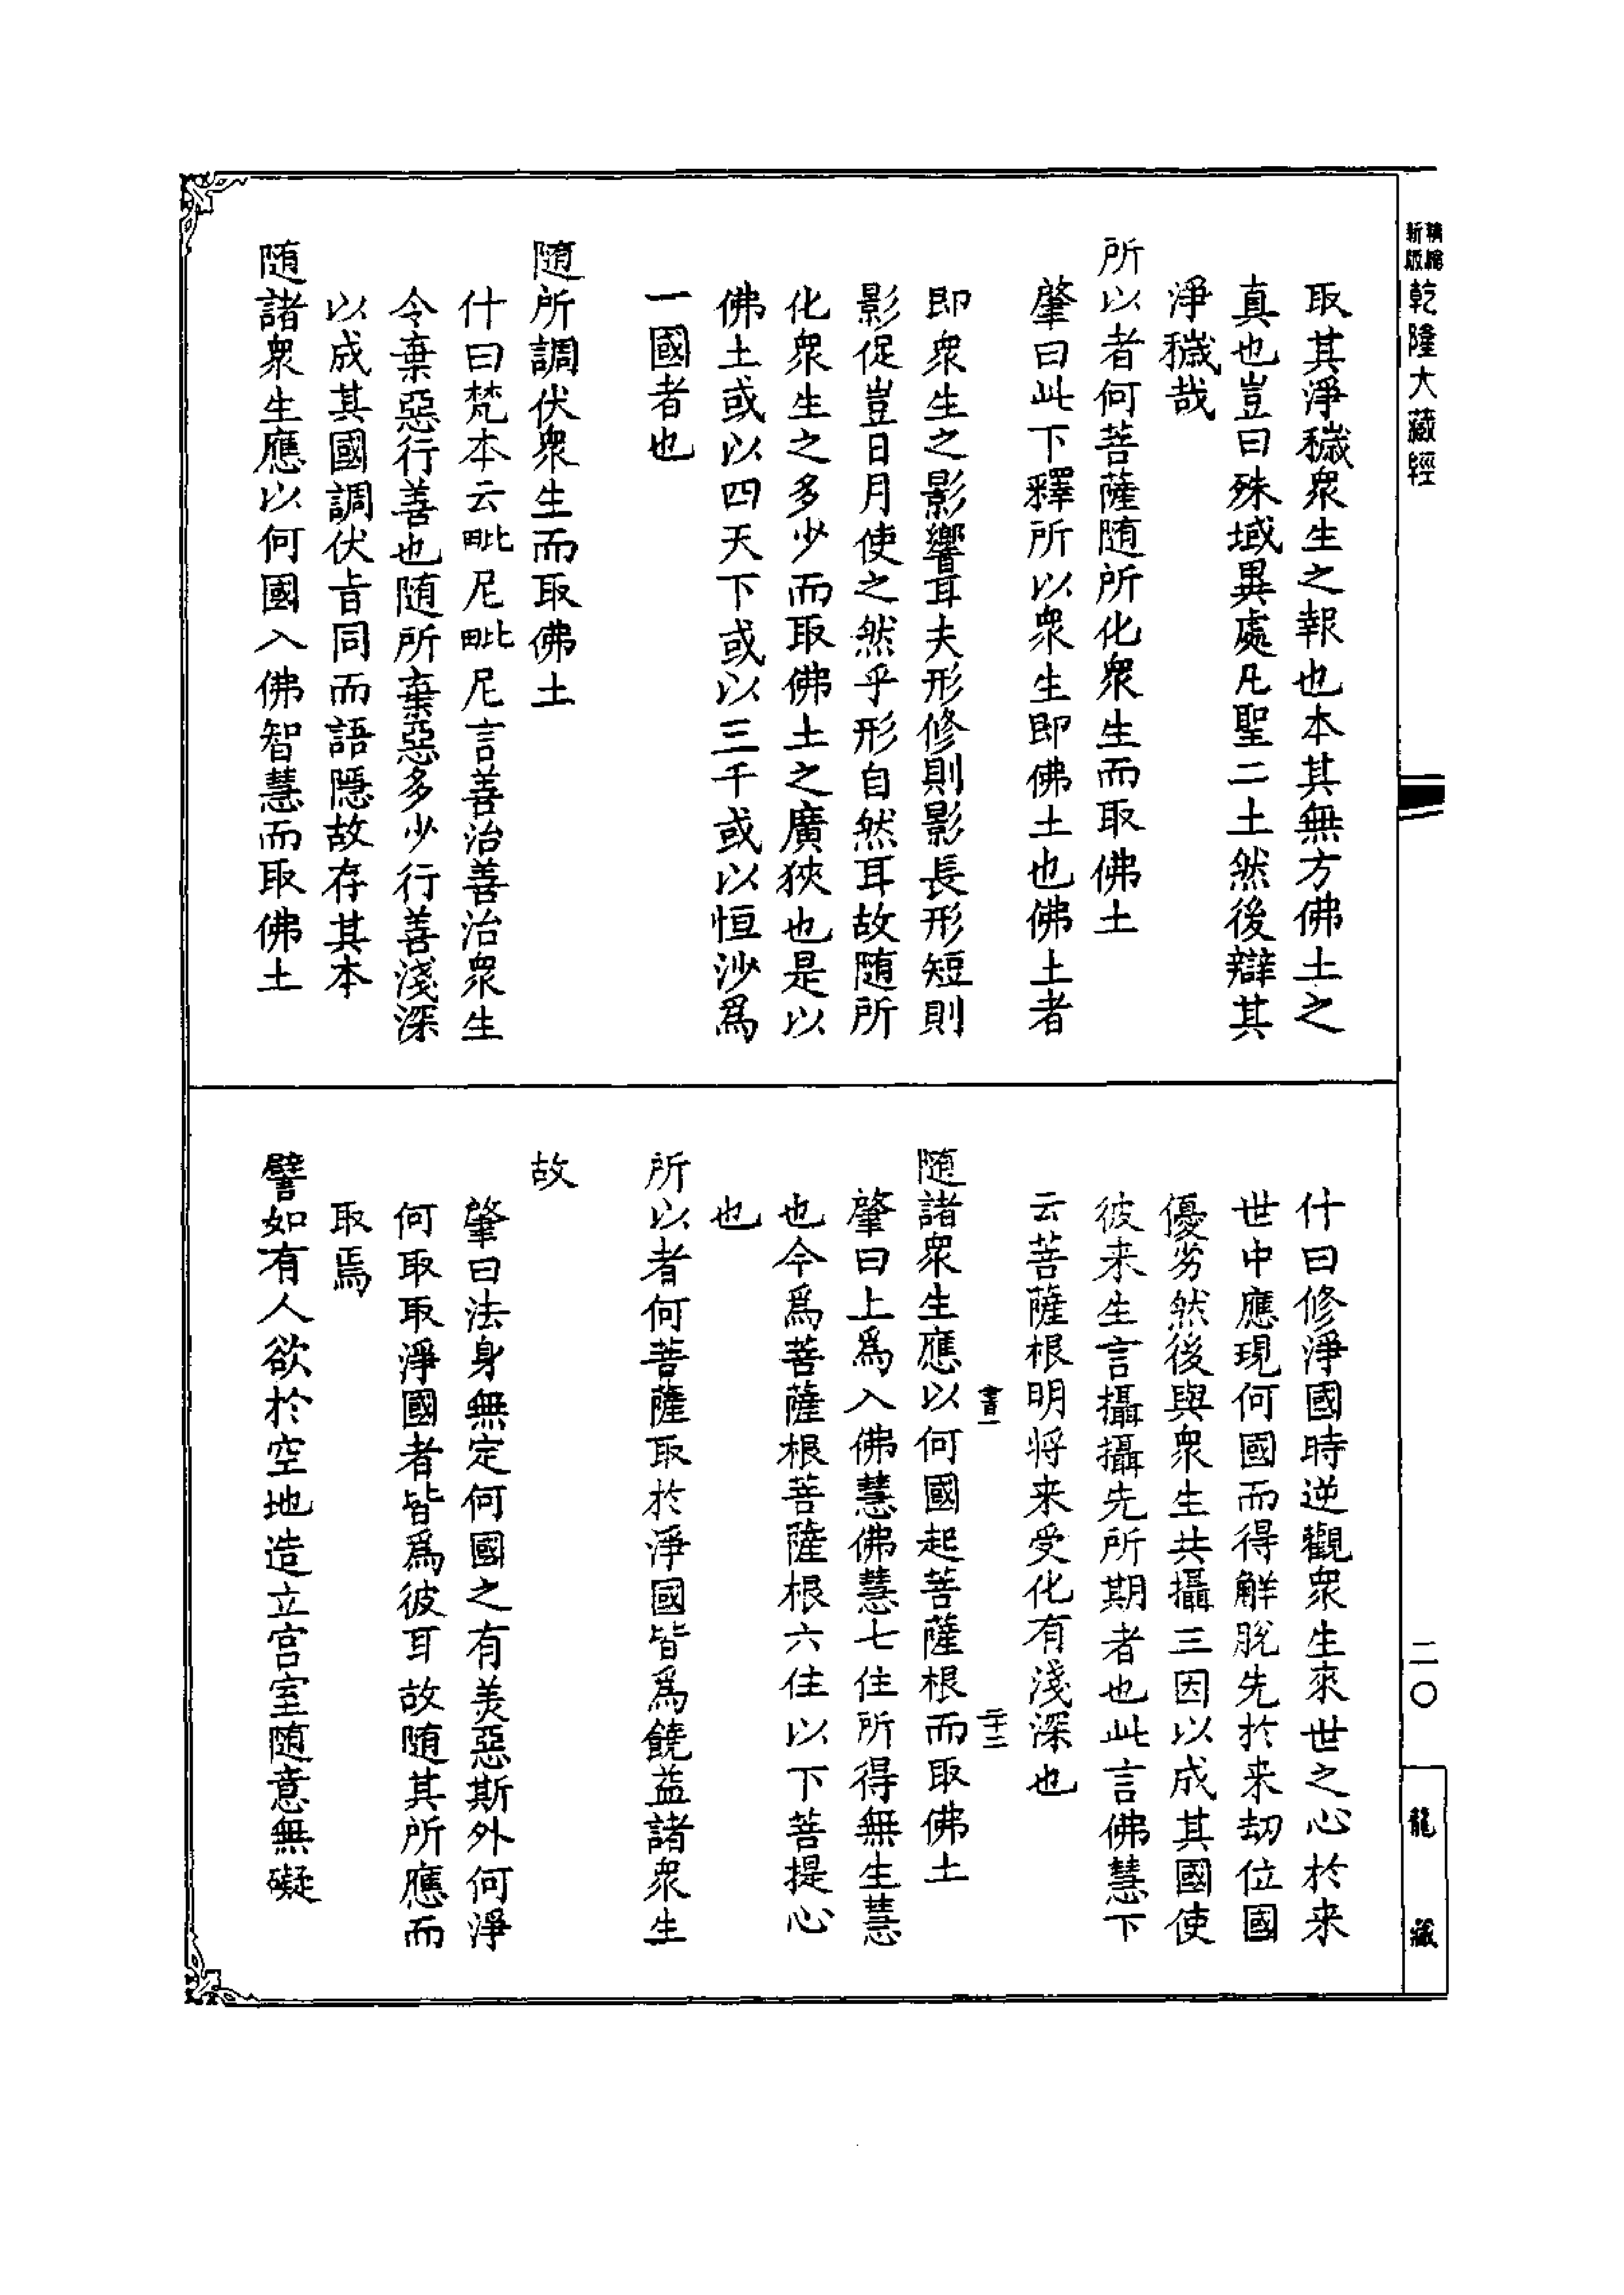 新版
精縮
乾隆大藏經
二〇
龍藏
取其淨穢衆生之報也本其無方佛土之
真也豈曰殊域異處凡聖二土然後辯其
淨穢哉
所以者何菩薩随所化衆生而取佛土
肇曰此下釋所以衆生即佛土也佛土者
即衆生之影響耳夫形修則影長形短則
影促豈日月使之然乎形自然耳故随所
化衆生之多少而取佛土之廣狹也是以
佛土或以四天下或以三千或以恒沙爲
一國者也
随所調伏衆生而取佛土
什曰梵本云毗尼毗尼言善治善治衆生
令棄惡行善也随所棄惡多少行善淺深
以成其國調伏旨同而語隱故存其本
随諸衆生應以何國入佛智慧而取佛土
什曰修淨國時逆觀衆生來世之心於来
世中應現何國而得解脫先於来劫位國
優劣然後與衆生共攝三因以成其國使
彼来生言攝攝先所期者也此言佛慧下
云菩薩根明将来受化有淺深也
書一
二十三
随諸衆生應以何國起菩薩根而取佛土
肇曰上爲入佛慧佛慧七住所得無生慧
也今爲菩薩根菩薩根六住以下菩提心
也
所以者何菩薩取於淨國皆爲饒益諸衆生
故
肇曰法身無定何國之有美惡斯外何淨
何取取淨國者皆爲彼耳故随其所應而
取焉
譬如有人欲於空地造立宮室随意無礙